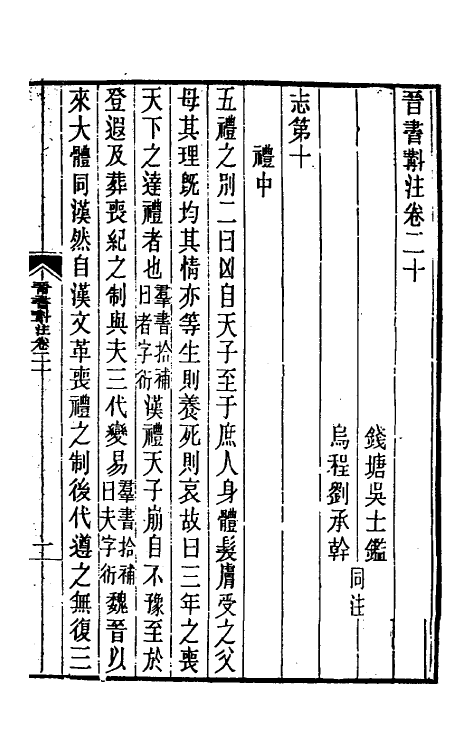 晉書斠注卷二十
錢塘吳士鑑
烏程劉承幹
同注
志第十
禮中
五禮之別二曰凶自天子至于庶人身體髮膚受之父
母其理既均其情亦等生則養死則哀故曰三年之喪
天下之達禮者也羣書拾補曰者字衍漢禮天子崩自不豫至於
登遐及葬喪紀之制與夫三代變易羣書拾補曰夫字衍魏晉以
來大體同漢然自漢文革喪禮之制後代遵之無復三
晉書斠注卷二十
一